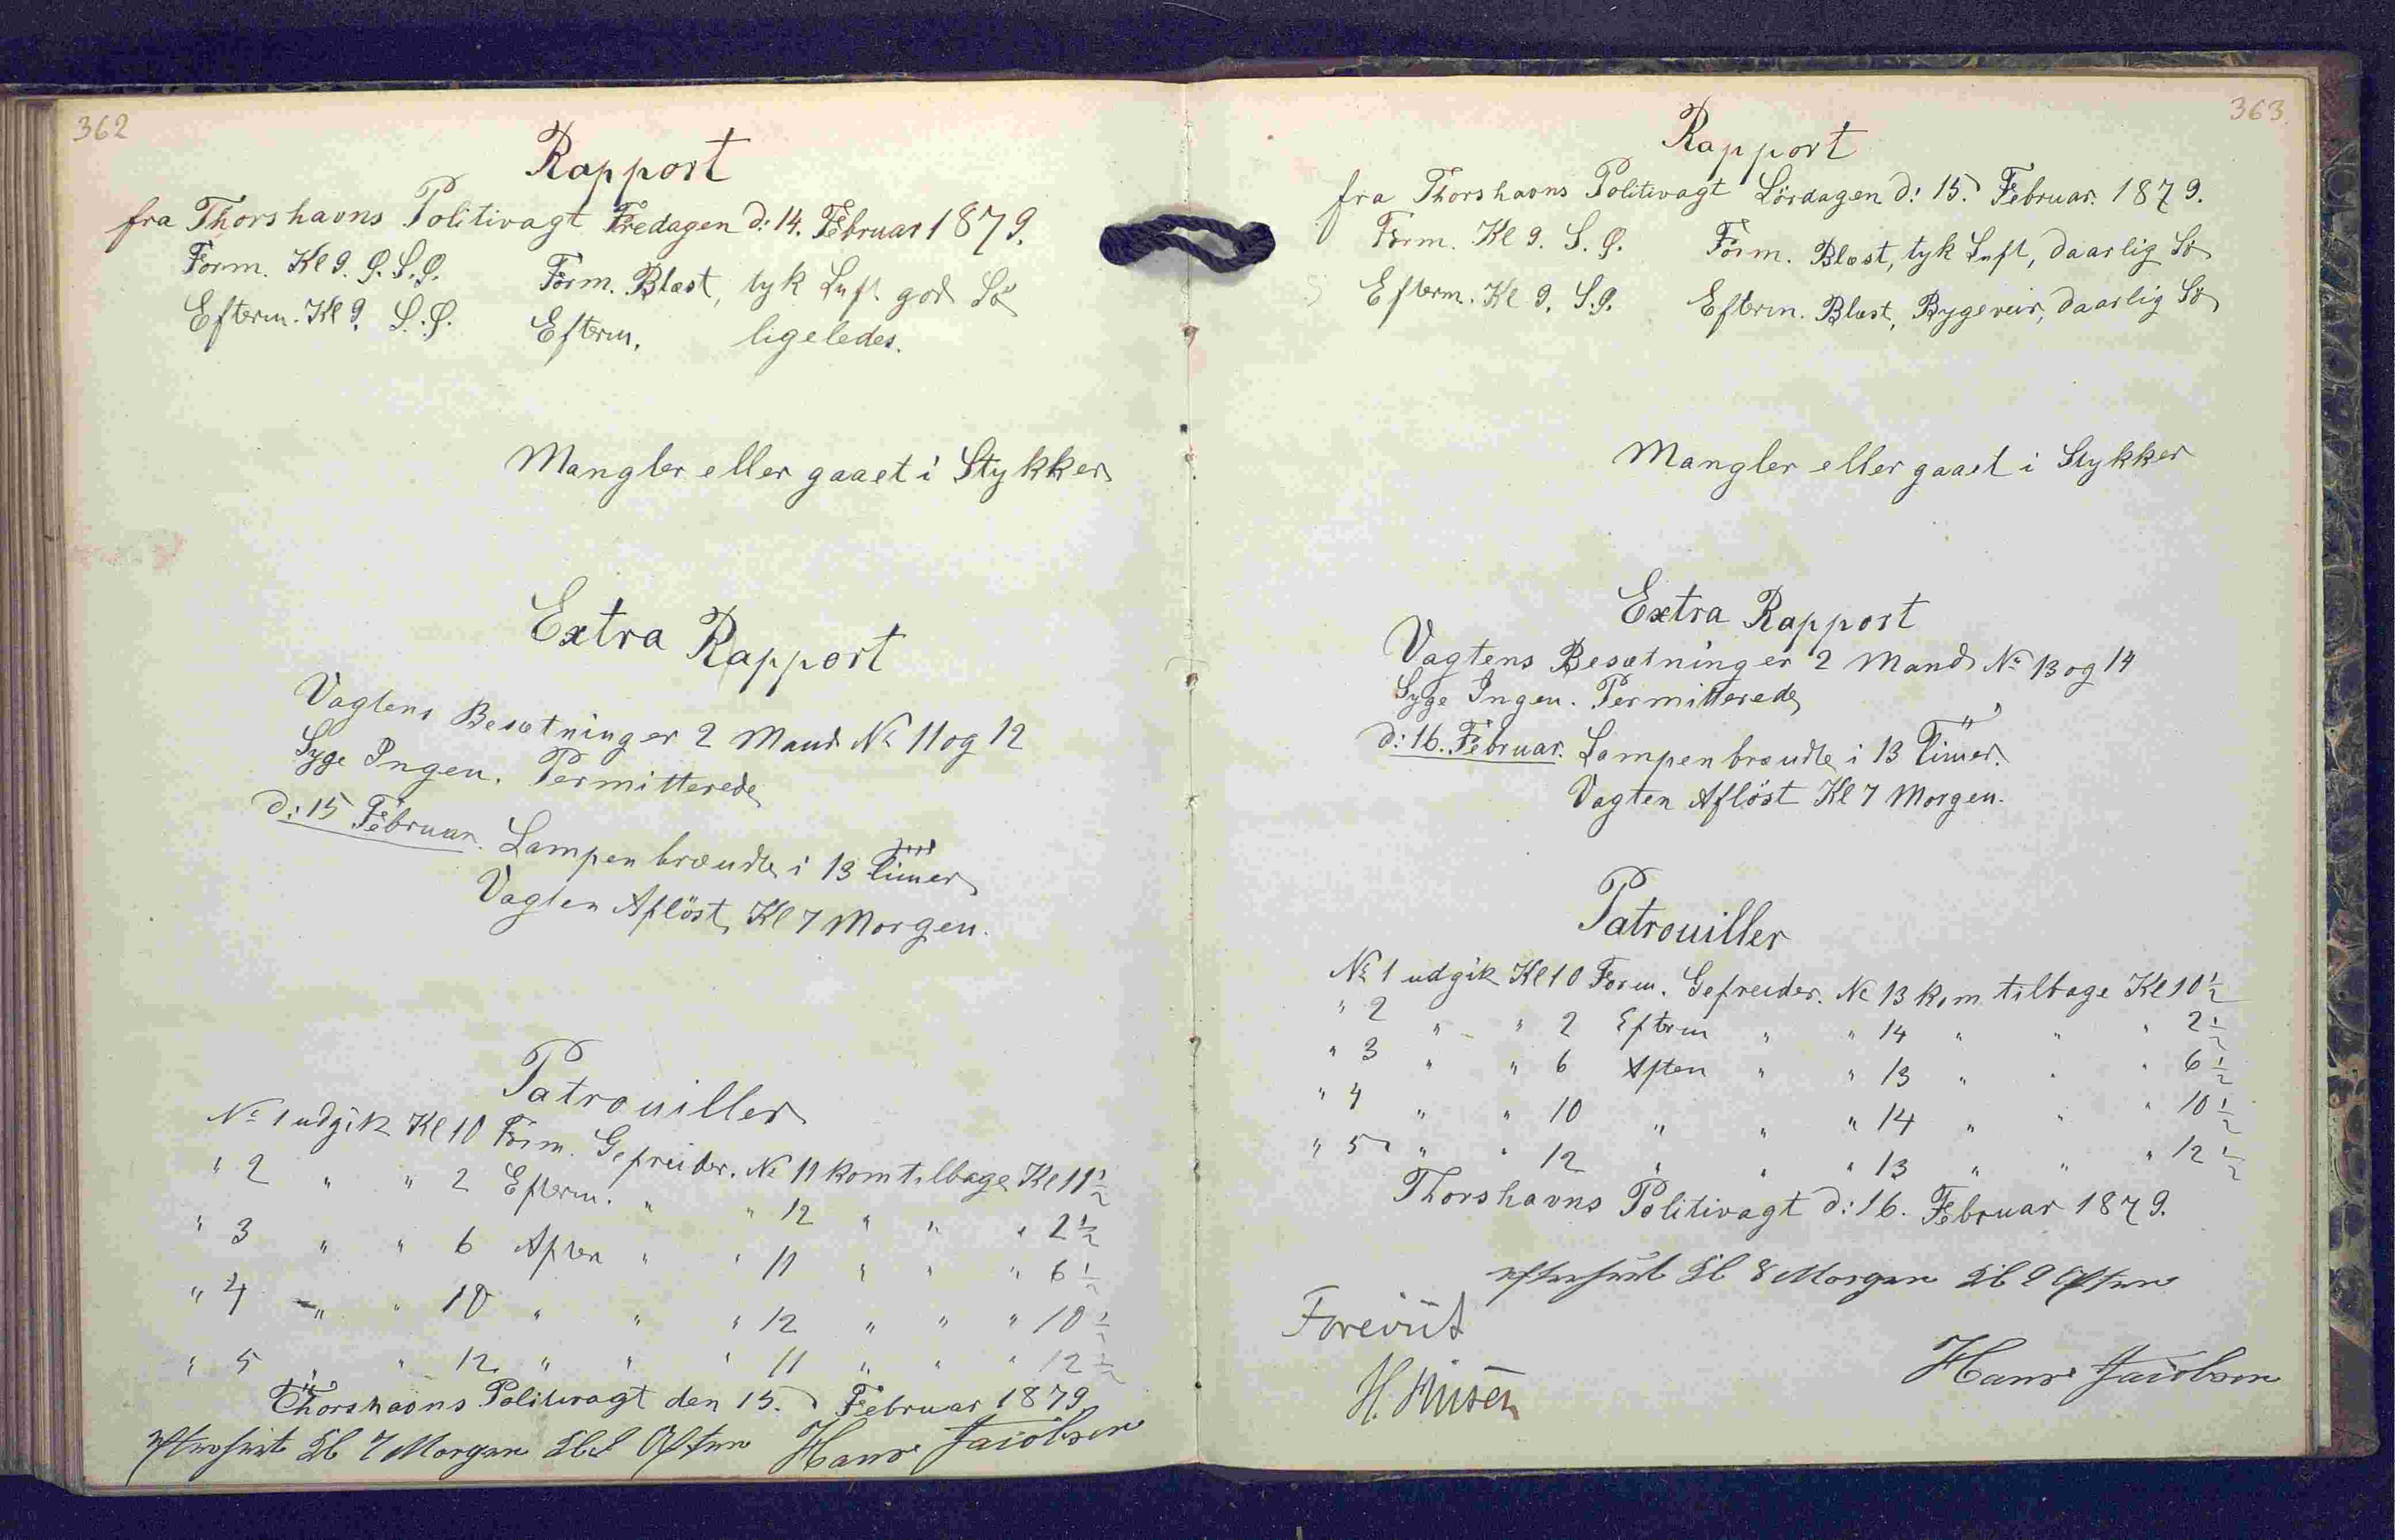 362
Rapport
fra Thorshavns Politivagt Fredagen d: 14. Februar 1879.
Form. Kl 9. Ø.S.Ø. Form. Blæst, tyk Luft god Sö
Efterm. Kl 9. S.Ø. Efterm. ligeledes.
Mangler eller gaaet i Stykker
Extra Rapport
Vagtens Besætning er 2 Mand No 11 og 12
Syge Ingen. Permitterede
d: 15 Februar. Lampen brændte i 13 Timer
Vagten Aflöst Kl 7 Morgen.
Patrouiller
No 1 udgik Kl 10 Form. Gefreider. No 11 kom tilbage Kl 11½
" 2 " " 2 Efterm. " " 12 " " " 2½
" 3 " " 6 Aften " " 11 " " " 6½
" 4 " " 10 " " " 12 " " " 10½
" 5 " " 12 " " " 11 " " " 12½
Thorshavns Politivagt den 15. Februar 1879
efterseet Kl 7 Morgen Kl Aften Hans Jacobsen
363.
Rapport
fra Thorshavns Politivagt Lördagen d: 15. Februar. 1879.
Form. Kl 9. S.Ø. Form. Blæst, tyk Luft, daarlig Sö
Efterm. Kl 9. S.Ø. Efterm. Blæst, Bygeveir, daarlig Sö
Mangler eller gaaet i Stykker
Extra Rapport
Vagtens Besætning er 2 Mand No 13 og 14
Syge Ingen. Permitterede
d: 16. Februar. Lampen brændte i 13 Timer.
Vagten Aflöst Kl 7 Morgen.
Patrouiller
No 1 udgik Kl 10 Form. Gefreider. No 13 kom tilbage Kl 10½
" 2 " " 2 Efterm " " 14 " " " 2½
" 3 " " 6 Aften " " 13 " " " 6½
" 4 " " 10 " " " 14 " " " 10½
" 5 " " 12 " " " 13 " " " 12½
Thorshavns Politivagt d: 16. Februar 1879.
efterseet Kl 8 Morgen Kl 9 Aften
Foreviist
Hans Jacobsen
H.